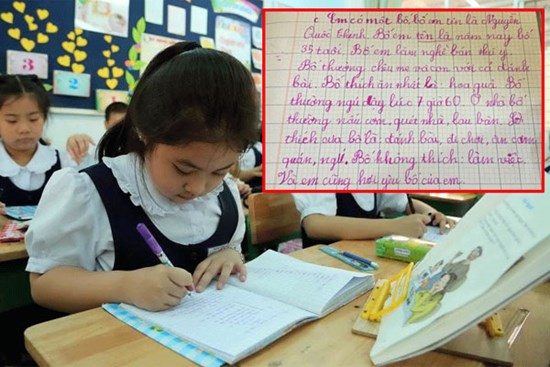 Em có một bố bố em tên là Nguyễn
Quốc Thịnh. Bố em tên là năm nay bố
35 tuổi. Bố em làm nghề bán thú y.
Bố thường, mẹ và con đánh
bài. Bố thích ăn nhất là: hoa quả. Bố
thường ngủ dậy lúc 7 giờ 60. Ở nhà bố
thường nấu cơm, quét nhà, lau bàn. Sở
thích của bố là: đánh bài, đi chơi, ăn cơm
quán, ngủ. Bố không thích: làm việc.
Và em cũng hơi yêu bố của em.
3
4